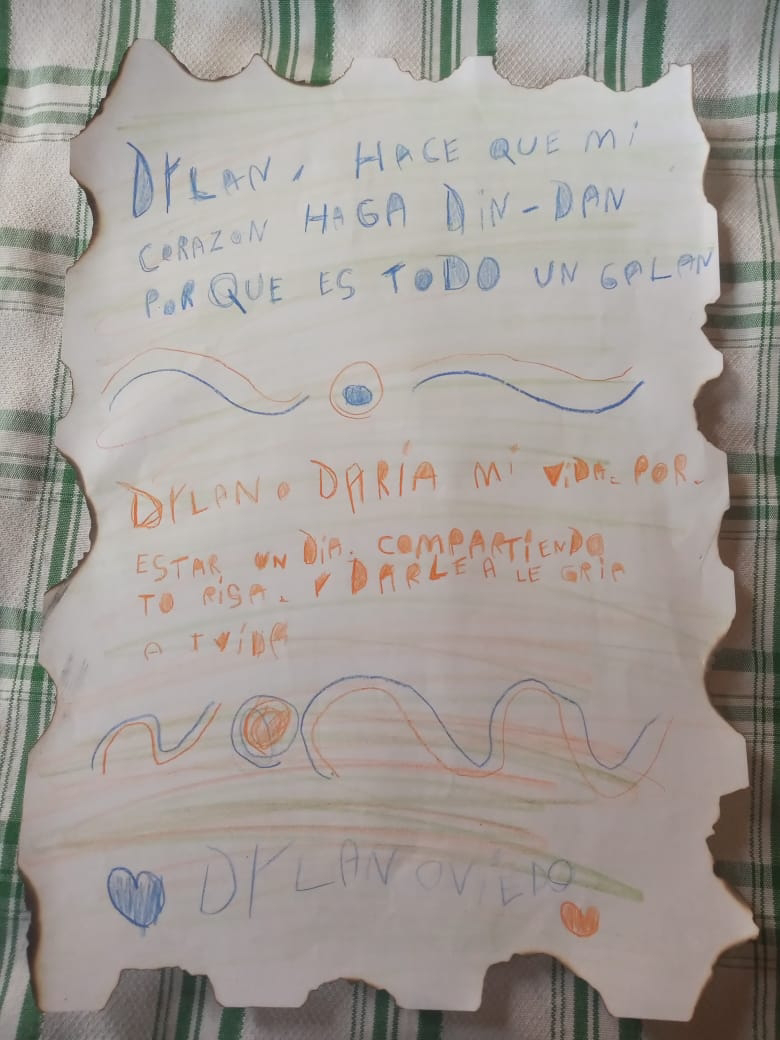 DYLAN, HACE QUE MI
CORAZON HAGA DIN-DAN
PORQUE ES TODO UN GALAN
DYLAN. DARÍA MI VIDA. POR.
ESTAR UN DÍA. COMPARTIENDO
TO RISA. Y DARLE A LE GRIA
A T VIDA
DYLAN OVIEDO